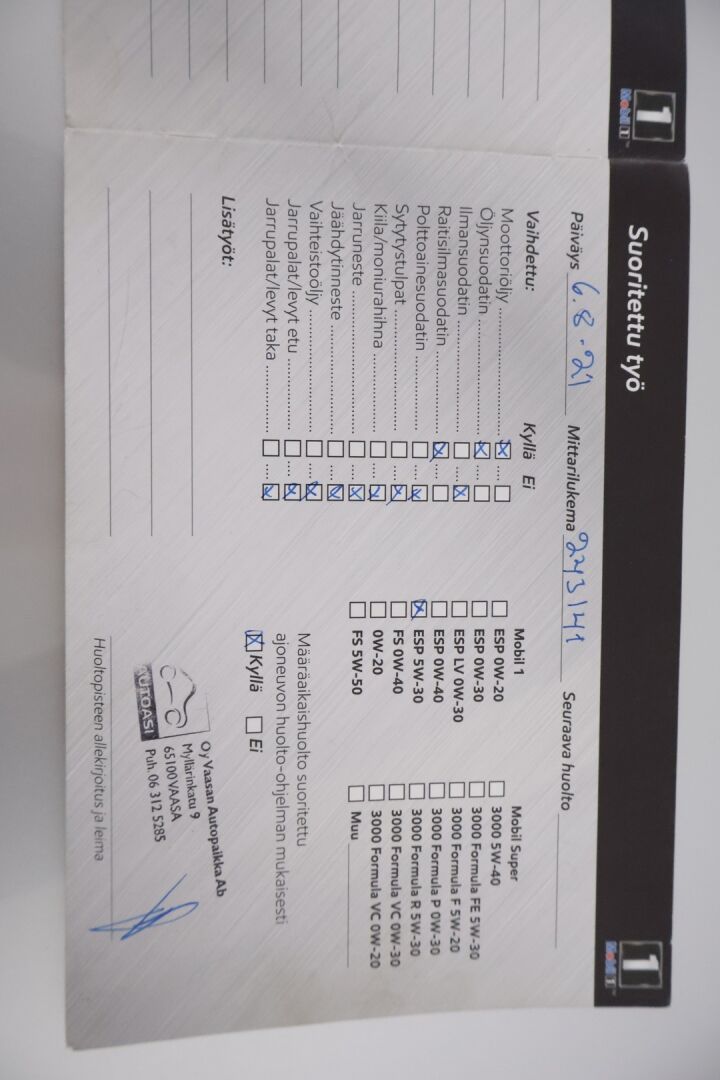 Mobil 1
1
Suoritettu työ
Mobil 1
1
Päiväys 6.8.21 Mittarilukema 223141 Seuraava huolto
Vaihdettu: Kyllä Ei
Moottoriöljy
Öljynsuodatin
Ilmansuodatin
Raitisilmasuodatin
Polttoainesuodatin
Sytytystulpat
Kiila/moniurahihna
Jarruneste
Jäähdytinneste
Vaihteistoöljy
Jarrupalat/levyt etu
Jarrupalat/levyt taka
Lisätyöt:
Mobil 1
ESP 0W-20
ESP 0W-30
ESP LV 0W-30
ESP 0W-40
ESP 5W-30
FS 0W-40
0W-20
FS 5W-50
Mobil Super
3000 5W-40
3000 Formula FE 5W-30
3000 Formula F 5W-20
3000 Formula P 0W-30
3000 Formula R 5W-30
3000 Formula VC 0W-30
3000 Formula VC 0W-20
Muu
Määräaikaishuolto suoritettu
ajoneuvon huolto-ohjelman mukaisesti
Kyllä Ei
AUTOASI
Oy Vaasan Autopaikka Ab
Myllärinkatu 9
65100 VAASA
Puh. 06 312 5285
Huoltopisteen allekirjoitus ja leima